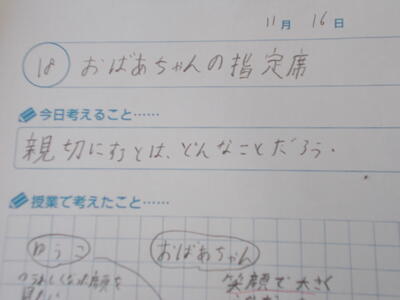 11月 16日
18 おばあちゃんの指定席
今日考えること……
親切にするとは、どんなことだろう。
授業で考えたこと……
ゆうこ おばあちゃん
うれしくなった顔を 笑顔で大きく